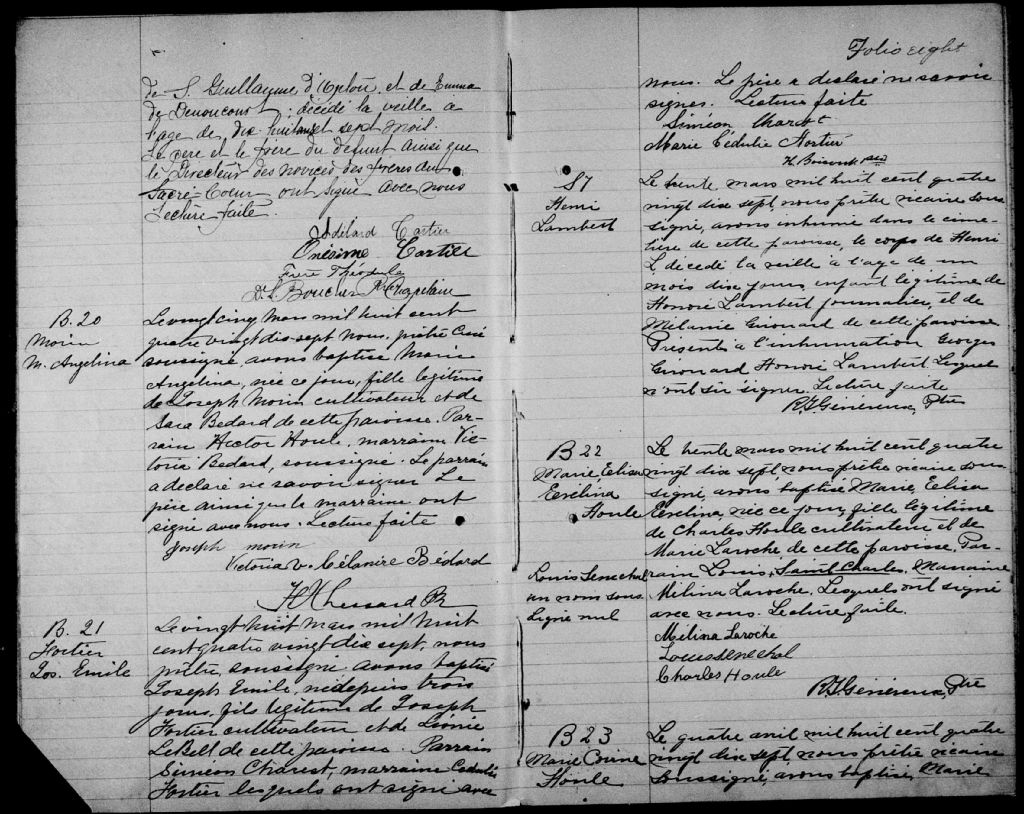 de S. Guillaume d'Upton, et de Emma
de Denoncourt; décédé la veille a
l'age de dix huit ans et sept mois.
Le pere et le frère du defunt ainsi que
le Directeur des novices des freres du
Sacré-Coeur ont signé avec nous
Lecture faite.
Adélard Cartier
Onésime Cartier
Frère Théodule
Boucher Ptre Chapelain
B. 20
Morin
M. Angelina
Le vingt cinq mars mil huit cent
quatre vingt dix-sept nous, prêtre curé
soussigné, avons baptisé Marie
Angelina, née ce jour, fille legitime
de Joseph Morin cultivateur et de
Sara Bedard de cette paroisse. Par-
rain Hector Houle, marraine Vic-
toria Bedard, soussigné. Le parrain
a declaré ne savoir signer Le
père ainsi que la marraine ont
signé avec nous. Lecture faite
Joseph morin
Victoria v. Célanire Bédard
B. 21
Fortier
Jos. Emile
Le vingt huit mars mil huit
cent quatre vingt dix sept, nous
prêtre, soussigné avons baptisé
Joseph Emile, né depuis trois
jours, fils legitime de Joseph
Fortier cultivateur et de Léonie
LeBel de cette paroisse. Parrain
Siméon Charest, marraine Cedulie
Fortier lesquels ont signé avec
Folio eight
nous. Le père a declaré ne savoir
signer. Lecture faite
Siméon Charest
Marie Cédulie Fortier
S7
Henri
Lambert
Le trente mars mil huit cent quatre
vingt dix sept, nous prêtre vicaire sous-
signé, avons inhumé dans le cime-
tière de cette paroisse, le corps de Henri
L. décedé la veille à l'age de un
mois dix jours, enfant légitime de
Honoré Lambert journalier, et de
Mélanie Girouard de cette paroisse
Présents à l'inhumation Georges
Girouard Honoré Lambert. Lesquels
n'ont su signer. Lecture faite
Généreux, Ptre
B 22
Marie, Eelisa
Eevelina
Houle
Le trente mars mil huit cent quatre
vingt dix sept, nous prêtre vicaire sous-
signé, avons baptisé Marie, Eelisa
Eevelina, née ce jour, fille légitime
de Charles Houle cultivateur et de
Marie Laroche, de cette paroisse, Par-
rain Louis, Saint Charles, Marraine
Mélina Laroche, Lesquels ont signé
avec nous. Lecture faite.
Louis Senechal
un nom sous
ligné nul
Mélina Laroche
Louis Senechal
Charles Houle
Généreux, Ptre
B 23
Marie Corine
Houle
Le quatre avril mil huit cent quatre
vingt dix sept, nous prêtre vicaire
soussigné, avons baptisé, Marie